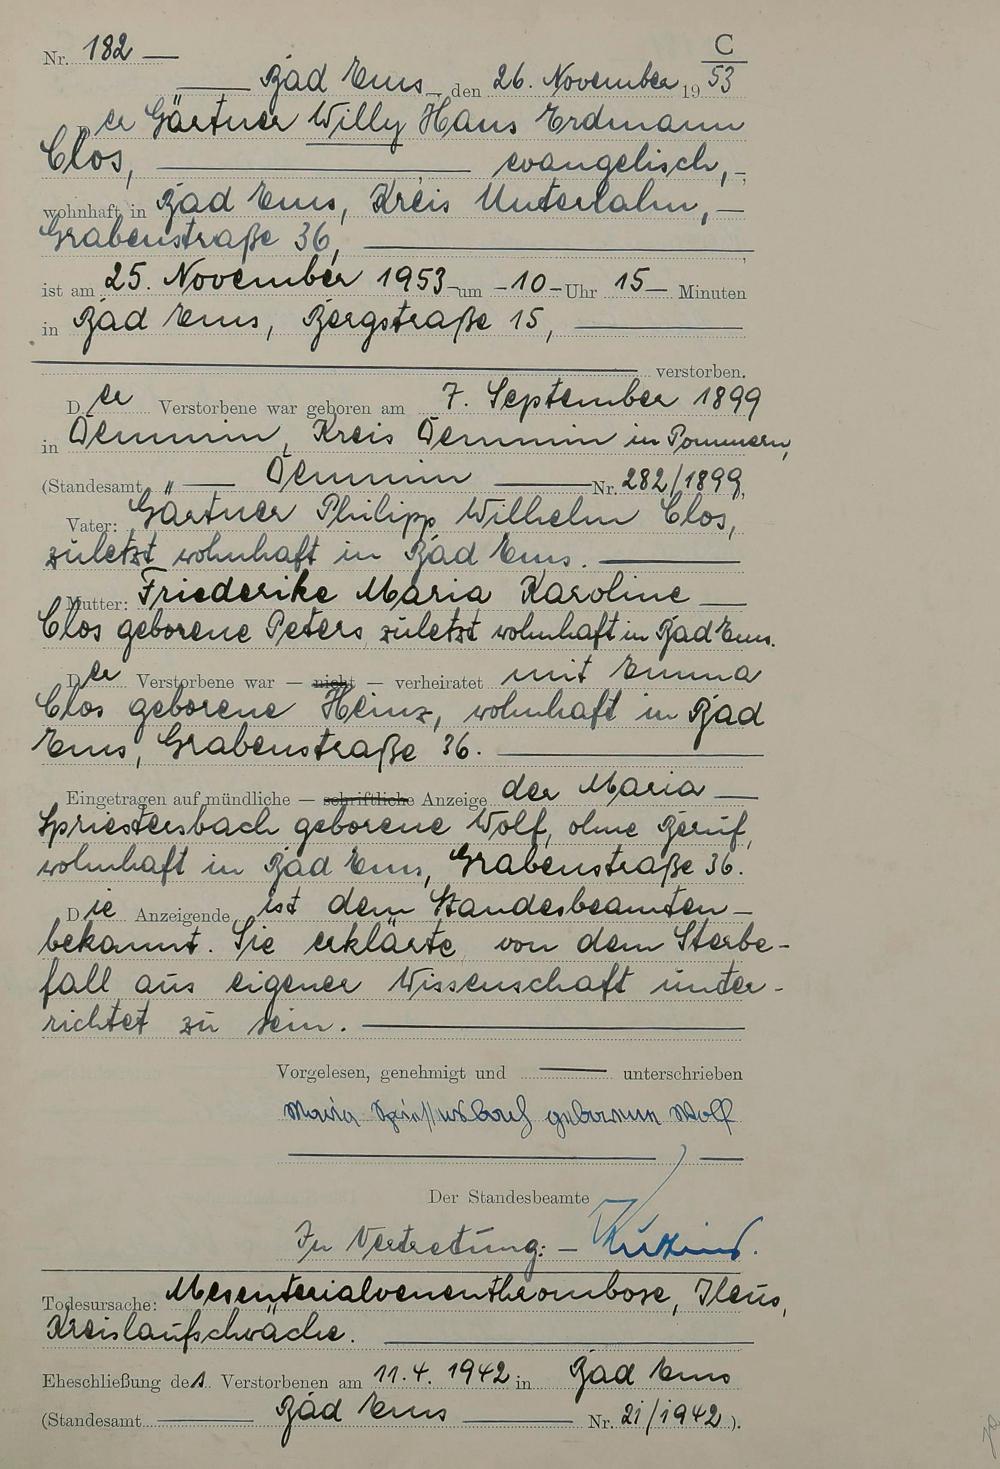 C
Nr. 182 — 53
Bad Ems, den 26. November 19 53
Der Gärtner Willy Hans Erdmann
Clos, evangelisch,
wohnhaft in Bad Ems, Kreis Unterlahn,
Grabenstraße 36,
ist am 25. November 1953 um 10 Uhr 15 Minuten
in Bad Ems, Bergstraße 15,
verstorben.
Der Verstorbene war geboren am 7. September 1899
in Demmin, Kreis Demmin in Pommern,
(Standesamt Demmin Nr. 282/1899,
Vater: Gärtner Philipp Wilhelm Clos,
zuletzt wohnhaft in Bad Ems.
Mutter: Friederike Maria Karoline
Clos geborene Peters, zuletzt wohnhaft in Bad Ems.
Der Verstorbene war — nicht — verheiratet mit Emma
Clos geborene Heinz, wohnhaft in Bad
Ems, Grabenstraße 36.
Eingetragen auf mündliche — schriftliche Anzeige der Maria
Spriestersbach geborene Wolf, ohne Beruf,
wohnhaft in Bad Ems, Grabenstraße 36.
Die Anzeigende ist dem Standesbeamten
bekannt. Sie erklärte, von dem Sterbe-
fall aus eigener Wissenschaft unter-
richtet zu sein.
Vorgelesen, genehmigt und — unterschrieben
Maria Spriestersbach geborene Wolf
Der Standesbeamte
In Vertretung: –
Todesursache: Mesenterialvenenthrombose, Ileus,
Kreislaufschwäche.
Eheschließung des Verstorbenen am 11.4.1942 in Bad Ems
(Standesamt Bad Ems Nr. 21/1942).